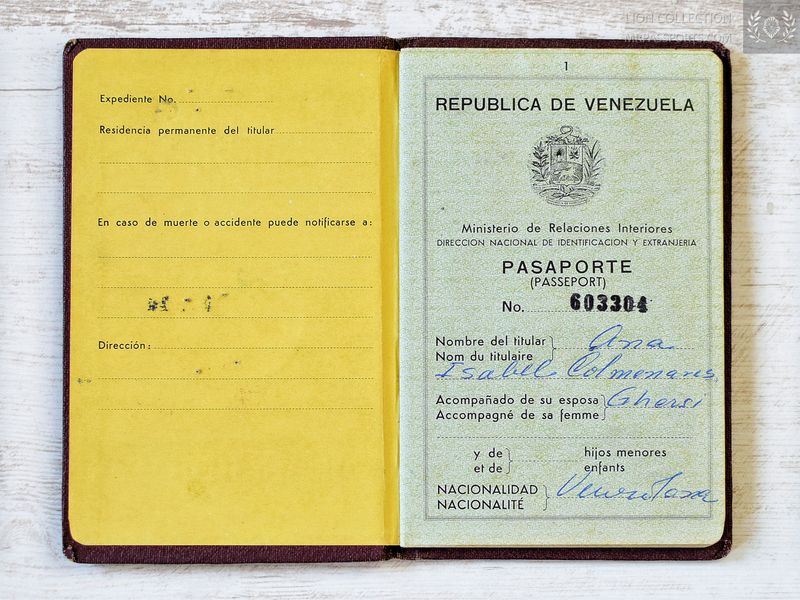 LION COLLECTION
MRPASSPORTS.COM
Expediente No.
Residencia permanente del titular
En caso de muerte o accidente puede notificarse a:
Dirección:
1
REPUBLICA DE VENEZUELA
Ministerio de Relaciones Interiores
DIRECCION NACIONAL DE IDENTIFICACION Y EXTRANJERIA
PASAPORTE
(PASSEPORT)
No. 603304
Nombre del titular Ana
Nom du titulaire
Isabel Colmenares
Acompañado de su esposa Ghersi
Accompagné de sa femme
y de hijos menores
et de enfants
NACIONALIDAD Venezolana
NACIONALITÉ